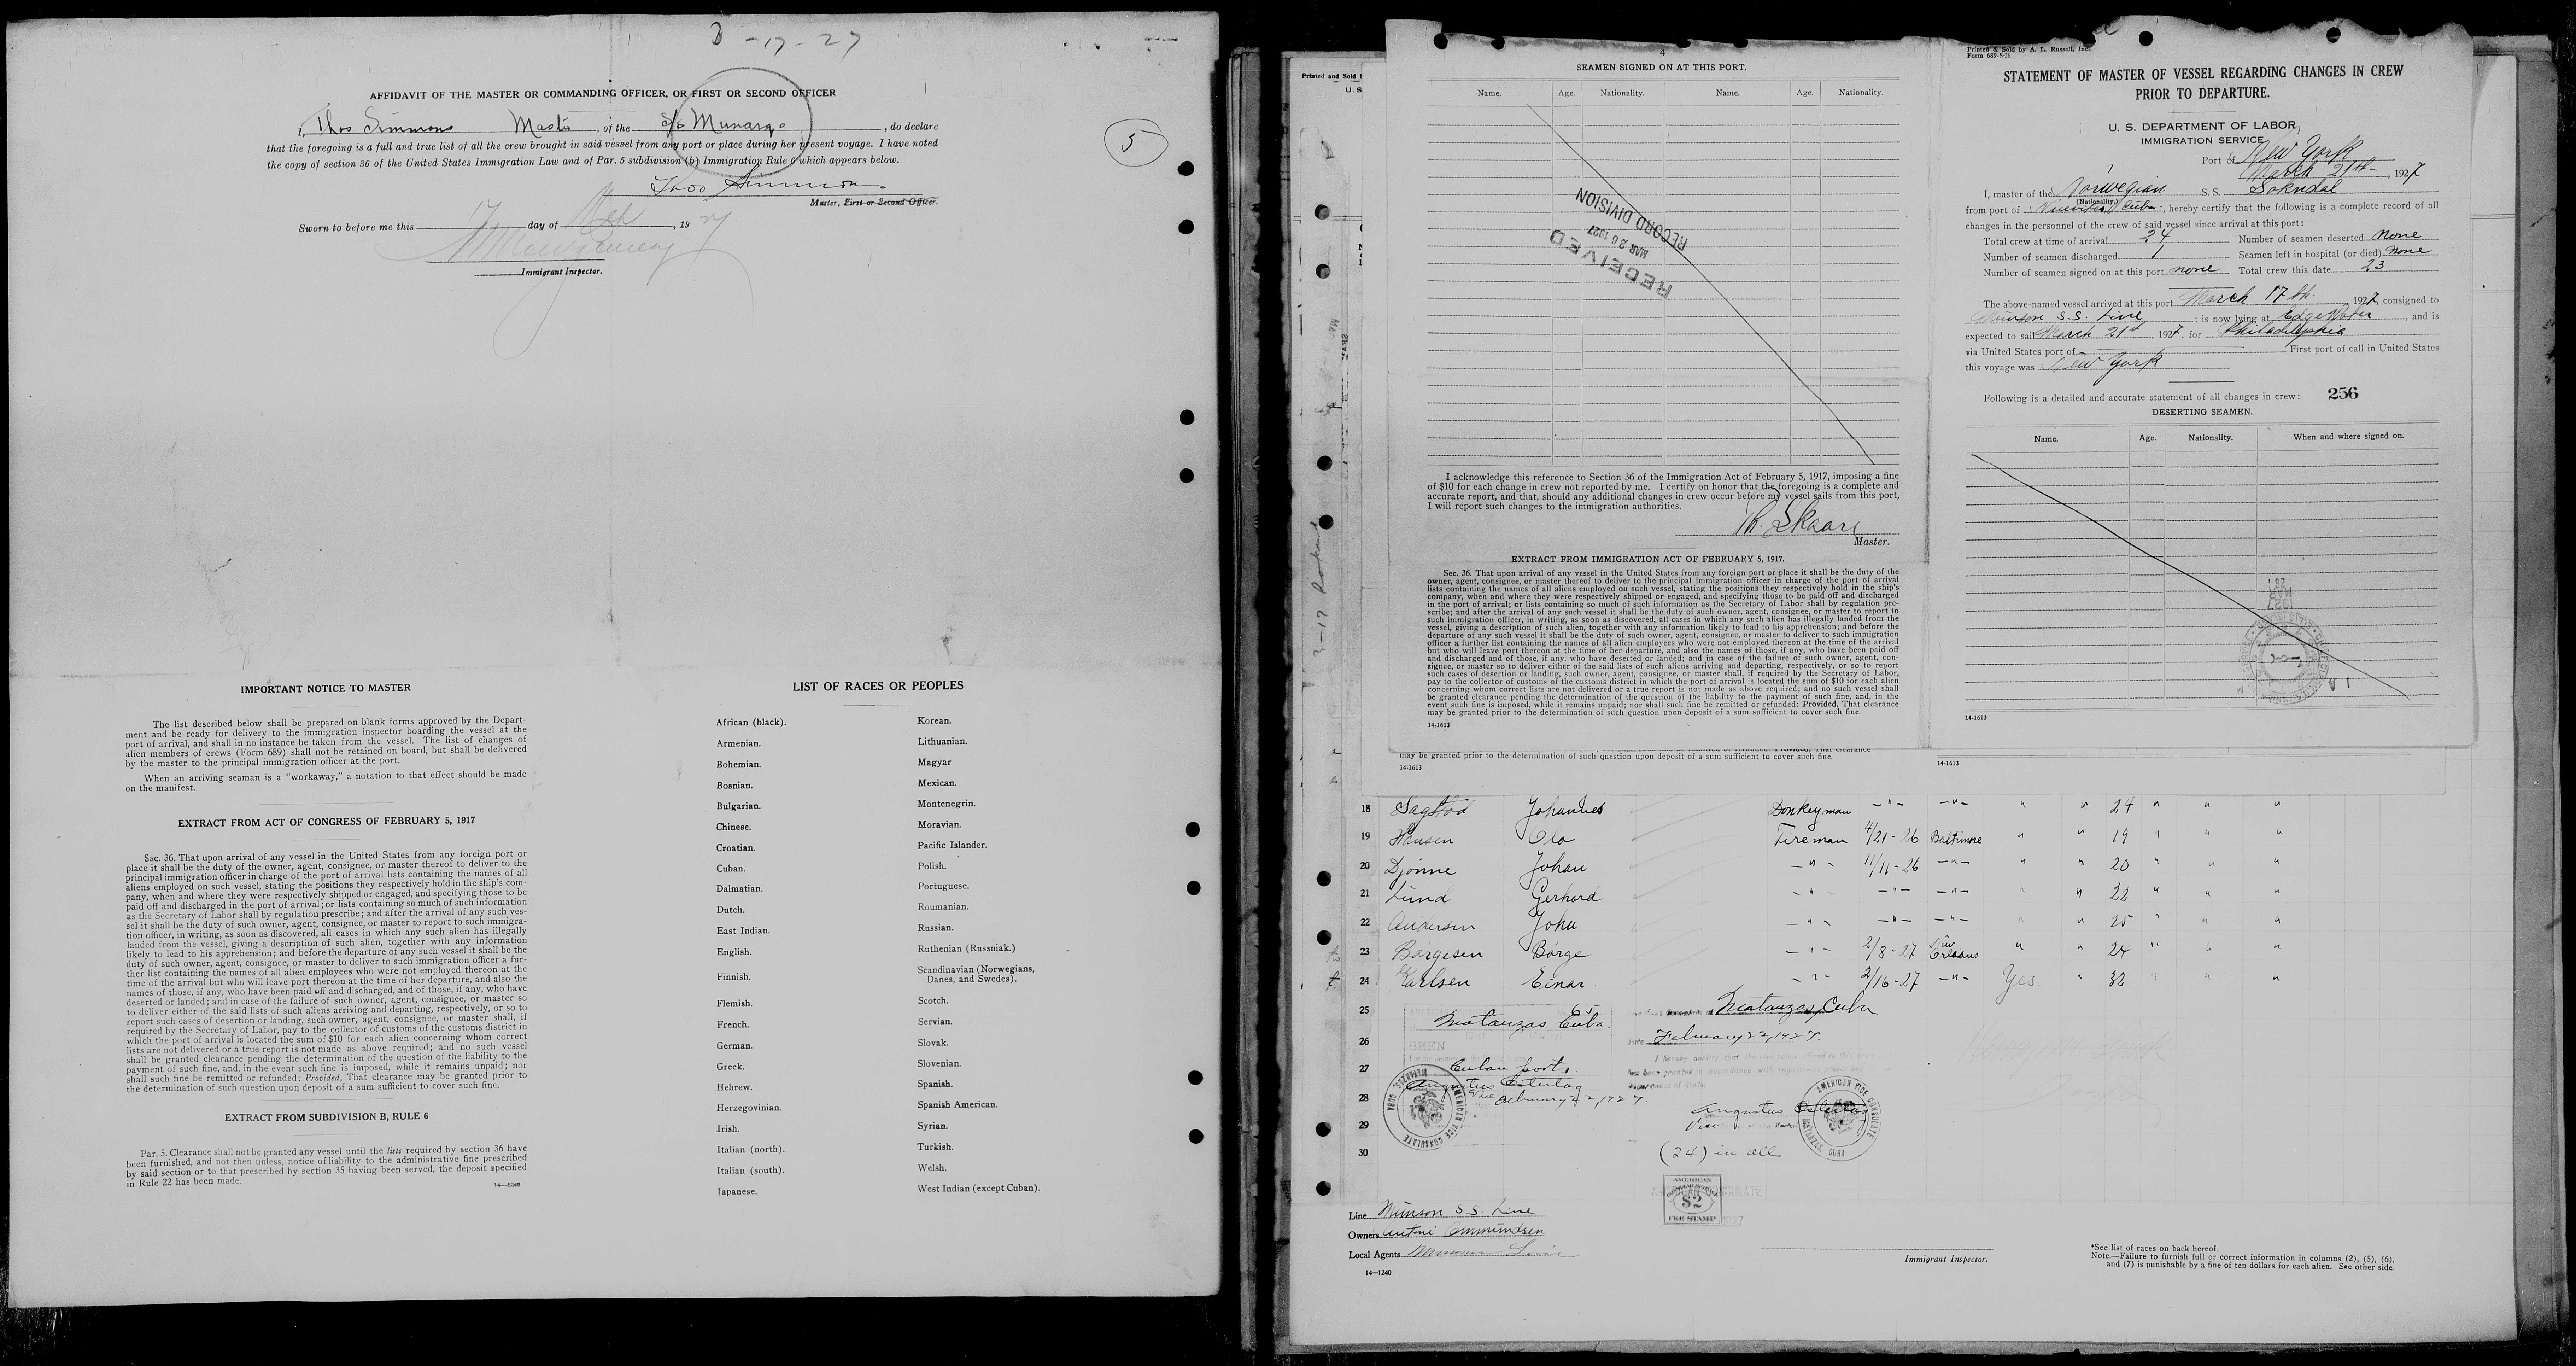 3-17-27
AFFIDAVIT OF THE MASTER OR COMMANDING OFFICER, OR FIRST OR SECOND OFFICER
I, Thos Simmons Master, of the S/S Munargo, do declare
that the foregoing is a full and true list of all the crew brought in said vessel from any port or place during her present voyage. I have noted
the copy of section 36 of the United States Immigration Law and of Par. 5 subdivision (b) Immigration Rule 6 which appears below.
5
Thos Simmons
Master, First or Second Officer.
Sworn to before me this 17 day of , 1927
Immigrant Inspector.
IMPORTANT NOTICE TO MASTER
The list described below shall be prepared on blank forms approved by the Depart-
ment and be ready for delivery to the immigration inspector boarding the vessel at the
port of arrival, and shall in no instance be taken from the vessel. The list of changes of
alien members of crews (Form 689) shall not be retained on board, but shall be delivered
by the master to the principal immigration officer at the port.
When an arriving seaman is a "workaway," a notation to that effect should be made
on the manifest.
EXTRACT FROM ACT OF CONGRESS OF FEBRUARY 5, 1917
SEC. 36. That upon arrival of any vessel in the United States from any foreign port or
place it shall be the duty of the owner, agent, consignee, or master thereof to deliver to the
principal immigration officer in charge of the port of arrival lists containing the names of all
aliens employed on such vessel, stating the positions they respectively hold in the ship's com-
pany, when and where they were respectively shipped or engaged, and specifying those to be
paid off and discharged in the port of arrival; or lists containing so much of such information
as the Secretary of Labor shall by regulation prescribe; and after the arrival of any such ves-
sel it shall be the duty of such owner, agent, consignee, or master to report to such immigra-
tion officer, in writing, as soon as discovered, all cases in which any such alien has illegally
landed from the vessel, giving a description of such alien, together with any information
likely to lead to his apprehension; and before the departure of any such vessel it shall be the
duty of such owner, agent, consignee, or master to deliver to such immigration officer a fur-
ther list containing the names of all alien employees who were not employed thereon at the
time of the arrival but who will leave port thereon at the time of her departure, and also the
names of those, if any, who have been paid off and discharged, and of those, if any, who have
deserted or landed; and in case of the failure of such owner, agent, consignee, or master so
to deliver either of the said lists of such aliens arriving and departing, respectively, or so to
report such cases of desertion or landing, such owner, agent, consignee, or master, shall, if
required by the Secretary of Labor, pay to the collector of customs of the customs district in
which the port of arrival is located the sum of $10 for each alien concerning whom correct
lists are not delivered or a true report is not made as above required; and no such vessel
shall be granted clearance pending the determination of the question of the liability to the
payment of such fine, and, in the event such fine is imposed, while it remains unpaid; nor
shall such fine be remitted or refunded: Provided, That clearance may be granted prior to
the determination of such question upon deposit of a sum sufficient to cover such fine.
EXTRACT FROM SUBDIVISION B, RULE 6
Par. 5. Clearance shall not be granted any vessel until the lists required by section 36 have
been furnished, and not then unless, notice of liability to the administrative fine prescribed
by said section or to that prescribed by section 35 having been served, the deposit specified
in Rule 22 has been made.
14—1240
LIST OF RACES OR PEOPLES
African (black). Korean.
Armenian. Lithuanian.
Bohemian. Magyar
Bosnian. Mexican.
Bulgarian. Montenegrin.
Chinese. Moravian.
Croatian. Pacific Islander.
Cuban. Polish.
Dalmatian. Portuguese.
Dutch. Roumanian.
East Indian. Russian.
English. Ruthenian (Russniak.)
Finnish. Scandinavian (Norwegians,
Danes, and Swedes).
Flemish. Scotch.
French. Servian.
German. Slovak.
Greek. Slovenian.
Hebrew. Spanish.
Herzegovinian. Spanish American.
Irish. Syrian.
Italian (north). Turkish.
Italian (south). Welsh.
Japanese. West Indian (except Cuban).
Printed and Sold
U. S
4
SEAMEN SIGNED ON AT THIS PORT.
Name. Age. Nationality. Name. Age. Nationality.
RECEIVED
MAR 26 1927
RECORD DIVISION
I acknowledge this reference to Section 36 of the Immigration Act of February 5, 1917, imposing a fine
of $10 for each change in crew not reported by me. I certify on honor that the foregoing is a complete and
accurate report, and that, should any additional changes in crew occur before my vessel sails from this port,
I will report such changes to the immigration authorities.
Th. Skaare
Master.
EXTRACT FROM IMMIGRATION ACT OF FEBRUARY 5, 1917.
Sec. 36. That upon arrival of any vessel in the United States from any foreign port or place it shall be the duty of the
owner, agent, consignee, or master thereof to deliver to the principal immigration officer in charge of the port of arrival
lists containing the names of all aliens employed on such vessel, stating the positions they respectively hold in the ship's
company, when and where they were respectively shipped or engaged, and specifying those to be paid off and discharged
in the port of arrival; or lists containing so much of such information as the Secretary of Labor shall by regulation pre-
scribe; and after the arrival of any such vessel it shall be the duty of such owner, agent, consignee, or master to report to
such immigration officer, in writing, as soon as discovered, all cases in which any such alien has illegally landed from the
vessel, giving a description of such alien, together with any information likely to lead to his apprehension; and before the
departure of any such vessel it shall be the duty of such owner, agent, consignee, or master to deliver to such immigration
officer a further list containing the names of all alien employees who were not employed thereon at the time of the arrival
but who will leave port thereon at the time of her departure, and also the names of those, if any, who have been paid off
and discharged and of those, if any, who have deserted or landed; and in case of the failure of such owner, agent, con-
signee, or master so to deliver either of the said lists of such aliens arriving and departing, respectively, or so to report
such cases of desertion or landing, such owner, agent, consignee, or master shall, if required by the Secretary of Labor,
pay to the collector of customs of the customs district in which the port of arrival is located the sum of $10 for each alien
concerning whom correct lists are not delivered or a true report is not made as above required; and no such vessel shall
be granted clearance pending the determination of the question of the liability to the payment of such fine, and, in the
event such fine is imposed, while it remains unpaid; nor shall such fine be remitted or refunded: Provided, That clearance
may be granted prior to the determination of such question upon deposit of a sum sufficient to cover such fine.
14-1613
Printed & Sold by A. L. Russell, Inc.
Form 689-8-26
STATEMENT OF MASTER OF VESSEL REGARDING CHANGES IN CREW
PRIOR TO DEPARTURE.
U. S. DEPARTMENT OF LABOR,
IMMIGRATION SERVICE
Port of New York
March 21st, 1927
I, master of the Norwegian S. S. Sokndal
(Nationality.)
from port of Nuevitas Cuba, hereby certify that the following is a complete record of all
changes in the personnel of the crew of said vessel since arrival at this port:
Total crew at time of arrival 24 Number of seamen deserted None
Number of seamen discharged 1 Seamen left in hospital (or died) None
Number of seamen signed on at this port none Total crew this date 23
The above-named vessel arrived at this port March 17th. 1927 consigned to
Munson S.S. Line; is now lying at Edgewater, and is
expected to sail March 21st, 1927. for Philadelphia
via United States port of First port of call in United States
this voyage was New York
Following is a detailed and accurate statement of all changes in crew: 256
DESERTING SEAMEN.
Name. Age. Nationality. When and where signed on.
14-1613
may be granted prior to the determination of such question upon deposit of a sum sufficient to cover such fine.
14-1613 14-1613
18 Sagstad Johannes Donkeyman -"- -"- " " 24 " " "
19 Hansen Ola Fireman 4/21-26 Baltimore " " 19 " " "
20 Djonne Johan -"- 11/11-26 -"- " " 20 " " "
21 Lund Gerhard -"- -"- -"- " " 22 " " "
22 Andersen John -"- -"- -"- " " 25 " " "
23 Borgesen Borge -"- 2/8-27 New Orleans " " 24 " " "
24 Karlsen Einar -"- 2/16-27 -"- Yes " 32 " " "
25 Matanzas Cuba. Matanzas, Cuba
26 SEEN February 22, 1927.
27 Cuban ports.
Augustus Ostertag
28 Vice February 22, 1927.
Augustus Ostertag
29 Vice
AMERICAN VICE CONSULATE MATANZAS, CUBA
AMERICAN VICE CONSULATE MATANZAS, CUBA
30 (24) in all
AMERICAN
$2
FEE STAMP
Line Munson S.S. Line
Owners Antoni Ommundsen
Local Agents Munson Line
14—1240
Immigrant Inspector.
*See list of races on back hereof.
Note.—Failure to furnish full or correct information in columns (2), (5), (6).
and (7) is punishable by a fine of ten dollars for each alien. See other side